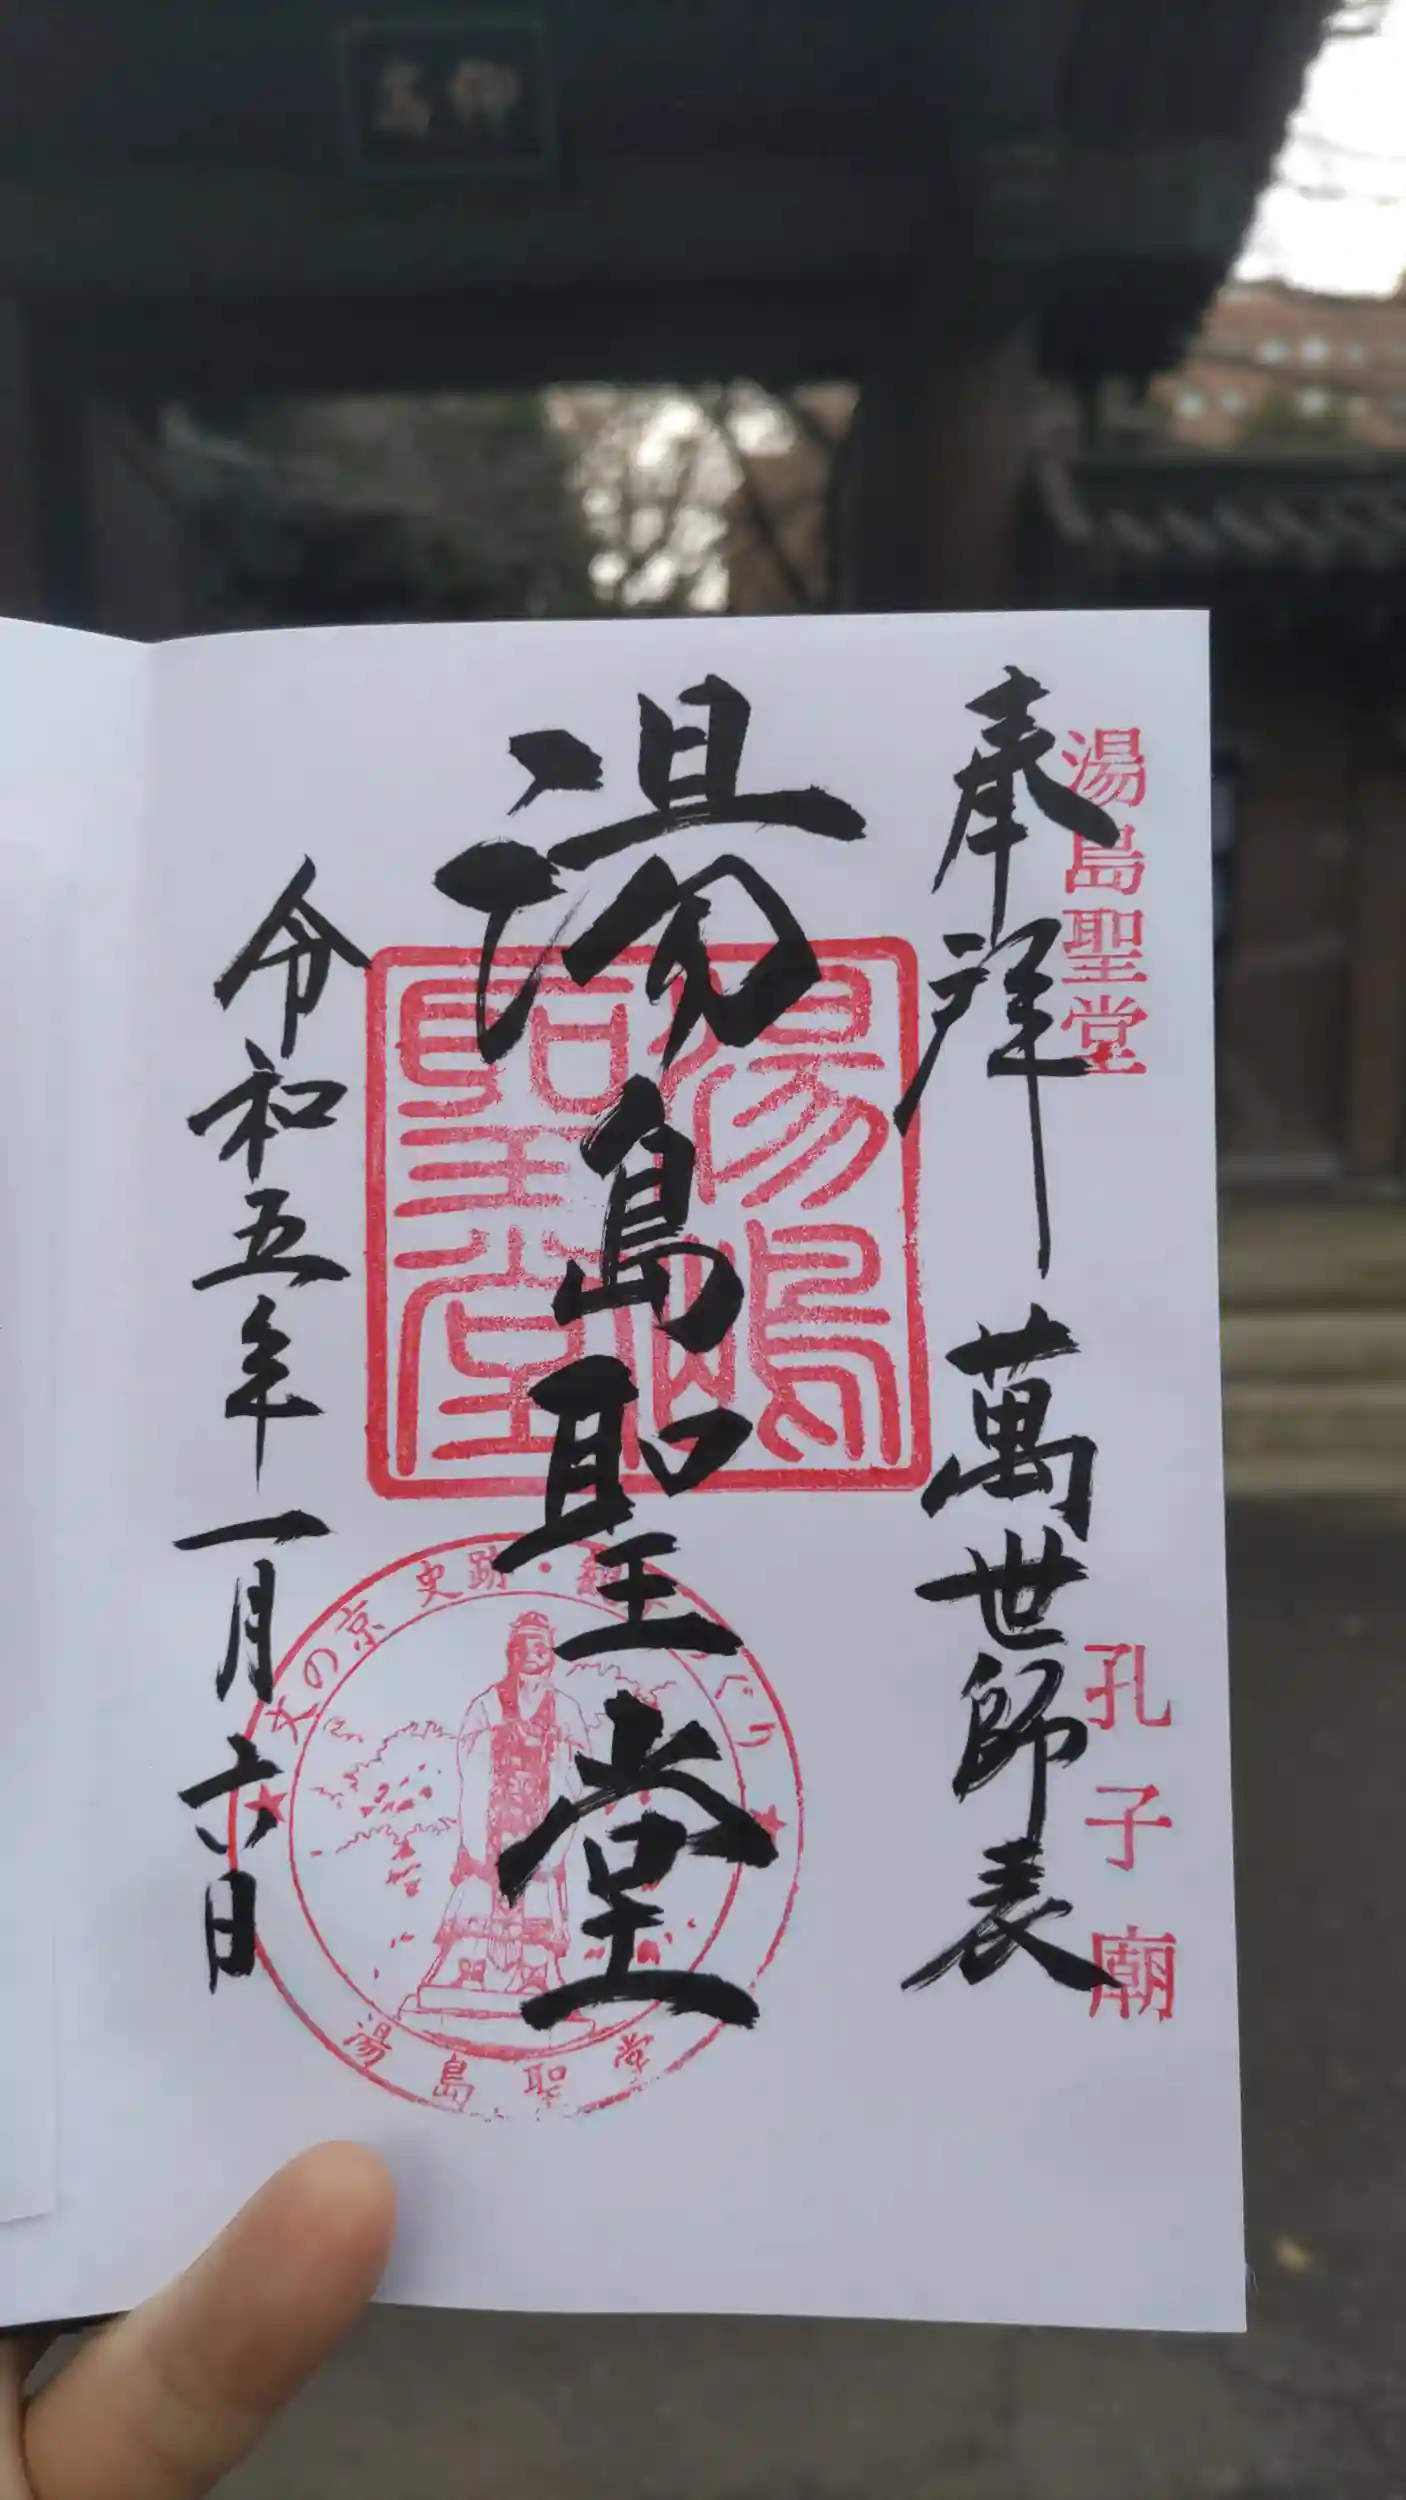 湯島聖堂
孔子廟
奉拝 萬世師表
湯島聖堂
湯嶋
聖堂
文の京 史跡・
湯島聖堂
令和五年一月六日